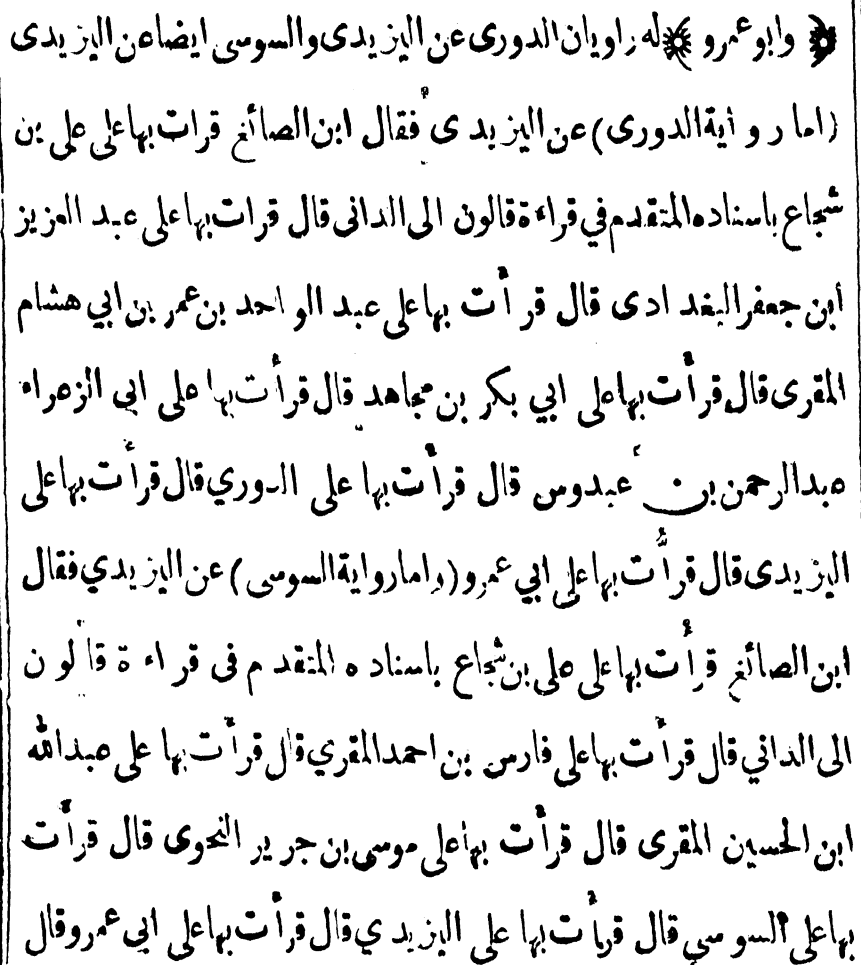 ﴿ وابو عمرو ﴾ له راويان الدورى عن اليزيدى والسوسى ايضا عن اليزيدى
(اما رو أية الدورى) عن اليزيدى فقال ابن الصائغ قرات بها على على بن
شجاع باسناده المتقدم في قراءة قالون الى الدانى قال قرات بها على عبد العزيز
ابن جعفر البغدادى قال قرأت بها على عبد الواحد بن عمر بن ابي هشام
المقرى قال قرأت بها على ابي بكر بن مجاهد قال قرأت بها على ابي الزهراء
عبدالرحمن بن عبدوس قال قرأت بها على الدوري قال قرأت بها على
اليزيدى قال قرأت بها على ابي عمرو (واما رواية السوسى) عن اليزيدي فقال
ابن الصائغ قرأت بها على على بن شجاع باسناده المتقدم فى قراءة قالون
الى الداني قال قرأت بها على فارس بن احمد المقري قال قرأت بها على عبدالله
ابن الحسين المقرى قال قرأت بها على موسى بن جرير النحوى قال قرأت
بها على السوسي قال قرأت بها على اليزيدي قال قرأت بها على ابي عمرو قال